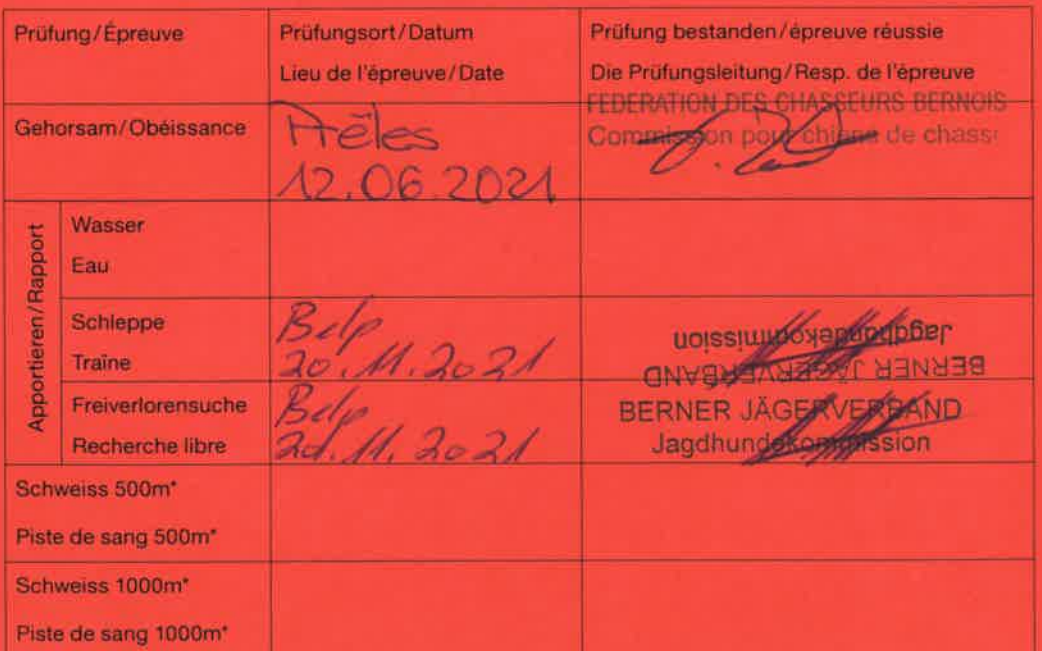 Prüfung/Épreuve
Prüfungsort/Datum
Lieu de l'épreuve/Date
Prüfung bestanden/épreuve réussie
Die Prüfungsleitung/Resp. de l'épreuve
Gehorsam/Obéissance
Prêles
12.06.2021
FEDERATION DES CHASSEURS BERNOIS
Commission pour chiens de chasse
Apportieren/Rapport
Wasser
Eau
Schleppe
Traîne
Belp
20.11.2021
BERNER JÄGERVERBAND
Jagdhundekommission
Freiverlorensuche
Recherche libre
Belp
20.11.2021
BERNER JÄGERVERBAND
Jagdhundekommission
Schweiss 500m*
Piste de sang 500m*
Schweiss 1000m*
Piste de sang 1000m*